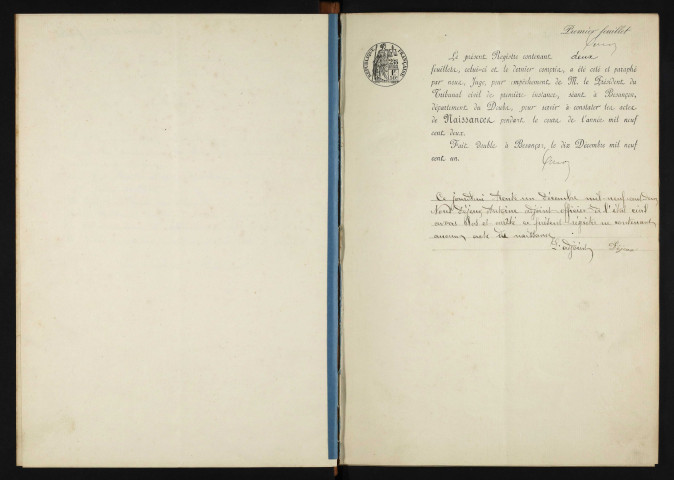 Premier feuillet
RÉPUBLIQUE FRANÇAISE
Le présent Registre contenant deux
feuillets, celui-ci et le dernier compris, a été coté et paraphé
par nous, Juge, pour empêchement de M. le Président du
Tribunal civil de première instance, séant à Besançon,
département du Doubs, pour servir à constater les actes
de Naissances pendant le cours de l'année mil neuf
cent deux.
Fait double à Besançon, le dix Décembre mil neuf
cent un.
Ce jourd'hui trente un décembre mil neuf cent deux
Nous Antoine adjoint officier de l'état civil
avons clos et arrêté ce présent registre ne contenant
aucun acte de naissance
L'adjoint